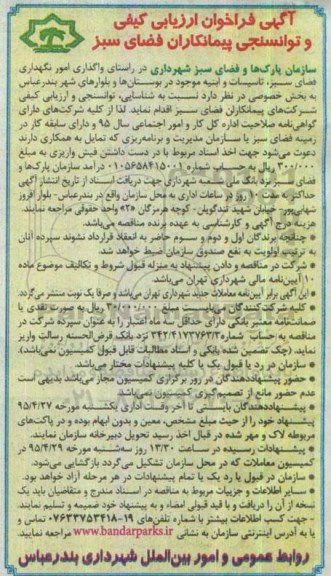 آگهی فراخوان ارزیابی کیفی
و توانسنجی پیمانکاران فضای سبز
سازمان پارک‌ها و فضای سبز شهرداری در راستای واگذاری امور نگهداری
فضای سبز، تاسیسات و ابنیه موجود در بوستان‌ها و بلوارهای شهر بندرعباس
به بخش خصوصی در نظر دارد نسبت به شناسایی، توانسنجی و ارزیابی کیفی
شرکت‌های پیمانکاران فضای سبز اقدام نماید. لذا از کلیه شرکت‌های دارای
گواهی‌نامه صلاحیت اداره کل کار و امور اجتماعی سال ۹۵ و دارای سابقه کار در
زمینه فضای سبز یا سازمان مدیریت و برنامه‌ریزی که تمایل به همکاری دارند
دعوت می‌شود جهت اخذ اسناد مربوط با در دست داشتن فیش واریزی به مبلغ
درآمد سازمان پارک‌ها و
فضای سبز نزد بانک ملی شعبه شهرداری جهت دریافت اسناد از تاریخ انتشار آگهی
حداکثر به مدت ۱۰ روز در ساعات اداری به محل سازمان واقع در بندرعباس- بلوار امروز
واحد حقوقی مراجعه نمایند.
هزینه درج آگهی و کارشناسی به عهده برنده مناقصه می‌باشد.
* چنانچه برندگان اول و دوم و سوم حاضر به انعقاد قرارداد نشوند سپرده آنان
به ترتیب اولویت به نفع صندوق سازمان ضبط خواهد شد.
* شرکت در مناقصه و دادن پیشنهاد به منزله قبول شروط و تکالیف موضوع ماده
۱۰ آیین‌نامه مالی شهرداری تهران می‌باشد.
* این آگهی برابر آیین‌نامه معاملات جدید شهرداری تهران می‌باشد و صرفا یک نوبت منتشر می‌گردد.
* کلیه شرکت‌کنندگان
ضمانت‌نامه معتبر بانکی دارای حداقل سه ماه اعتبار را به عنوان سپرده شرکت در
مناقصه به حساب شماره ۳۴۲/۴۱۷۳۷۶۳/۳ نزد بانک قرض‌الحسنه رسالت واریز
نماید. (چک تضمین شده بانکی و اسناد مطالبات قابل قبول کمیسیون نمی‌باشد).
* سازمان در رد یا قبول یک یا کلیه پیشنهادات مختار می‌باشد.
* حضور پیشنهاددهندگان در روز برگزاری کمیسیون مجاز می‌باشد بدیهی است
عدم حضور مانع از تصمیم‌گیری کمیسیون نمی‌باشد.
* پیشنهاددهندگان بایستی تا آخر وقت اداری یکشنبه مورخه ۹۵/۴/۲۷
پیشنهاد خود را از حیث مبلغ مشخص، معین و بدون ابهام بوده و در پاکت‌های
مربوطه لاک و مهر شده در قبال اخذ رسید تحویل دبیرخانه سازمان نمایند.
* پیشنهادات رسیده در ساعت ۱۳/۳۰ روز سه‌شنبه مورخه ۹۵/۴/۲۹ در
کمیسیون معاملات که در محل سازمان تشکیل می‌گردد بازگشایی می‌شود.
* سازمان در قبول یا رد یک یا تمام پیشنهادات در هر مرحله آزاد خواهد بود.
* سایر اطلاعات و جزییات مربوط به مناقصه در اسناد مندرج و متقاضیان باید یک
نسخه از آن را دریافت و با قید قبولی امضاء و به پیشنهاد خود ضمیمه و تسلیم نمایند.
* جهت کسب اطلاعات بیشتر با شماره تلفن‌های ۱۹-۰۷۶۳۳۷۵۳۴۱۸ تماس و
یا به آدرس اینترنتی سازمان به نشانی www.bandarparks.ir مراجعه نمایند.
روابط عمومی و امور بین‌الملل شهرداری بندرعباس